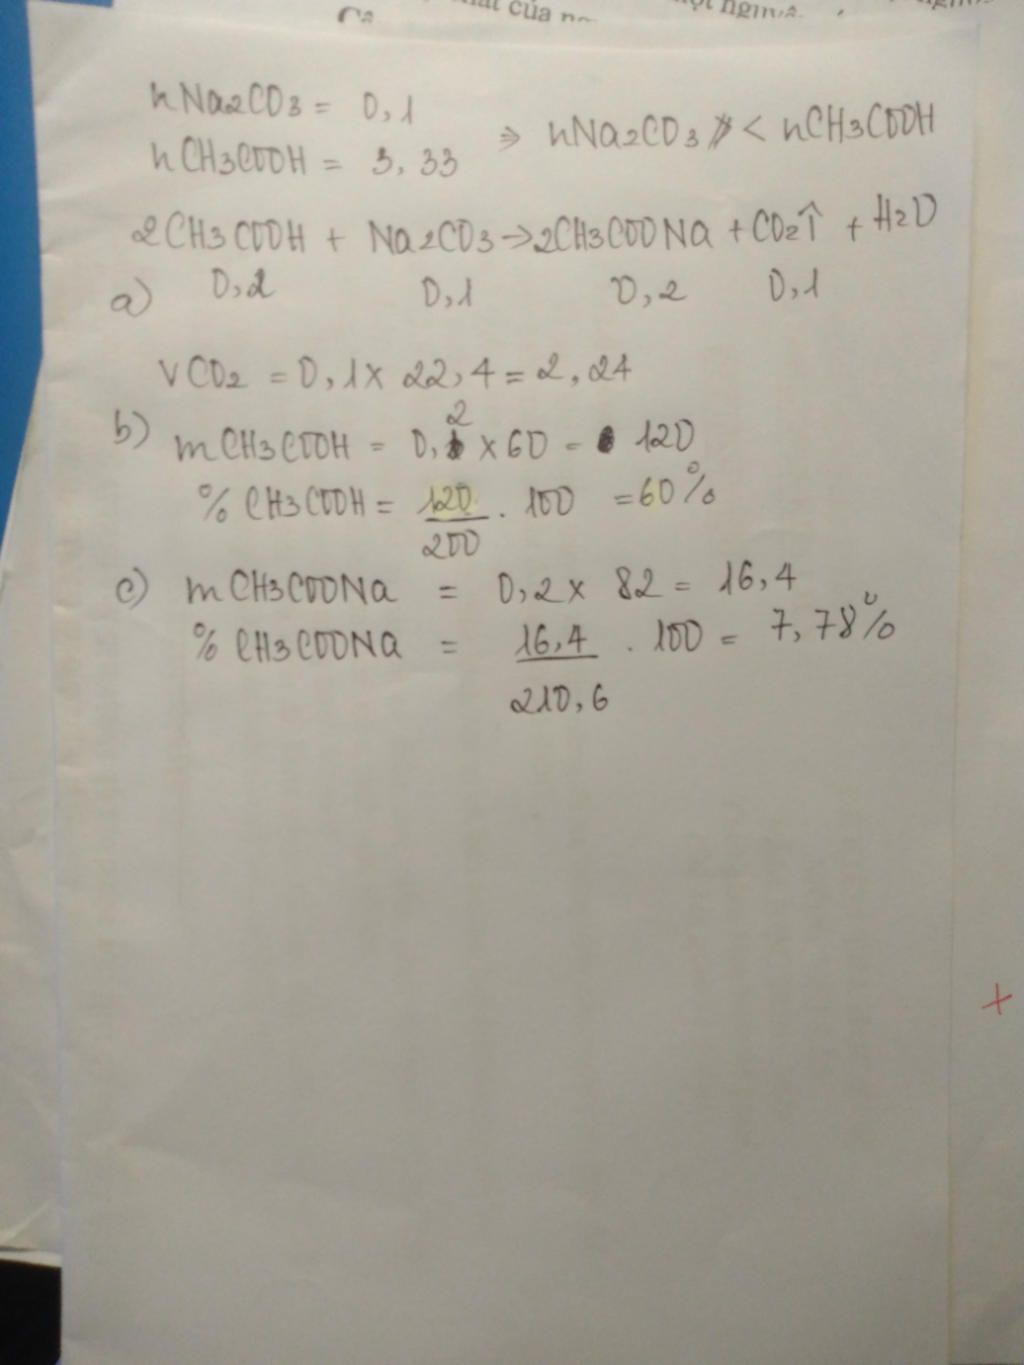 của
nNa2CO3 = 0,1
nCH3COOH = 3,33
⇒ nNa2CO3 < nCH3COOH
2CH3COOH + Na2CO3 → 2CH3COONa + CO2↑ + H2O
a) 0,2 0,1 0,2 0,1
VCO2 = 0,1 x 22,4 = 2,24
b) mCH3COOH = 0,2 x 60 = 120
% CH3COOH = 120/200 . 100 = 60%
c) mCH3COONa = 0,2 x 82 = 16,4
% CH3COONa = 16,4/210,6 . 100 = 7,78%